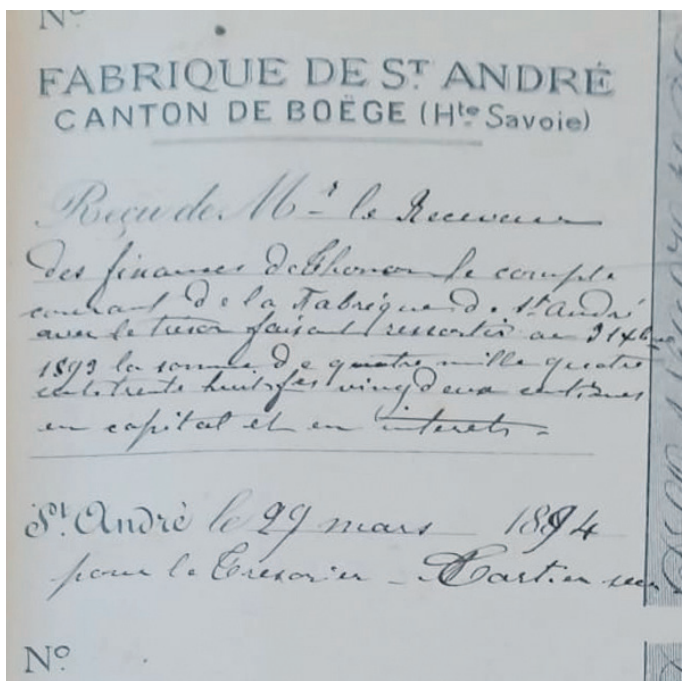 No.
FABRIQUE DE ST ANDRÉ
CANTON DE BOËGE (Hte Savoie)
Reçu de Mr le Receveur
des finances de Thonon le compte
courant de la Fabrique de St André
avec le tresor faisant ressortir au 31
1893 la somme de quatre mille quatre
cent trente huit fcs vingt deux centimes
en capital et en interets
St. André le 29 mars 1894
pour le Tresorier
No.